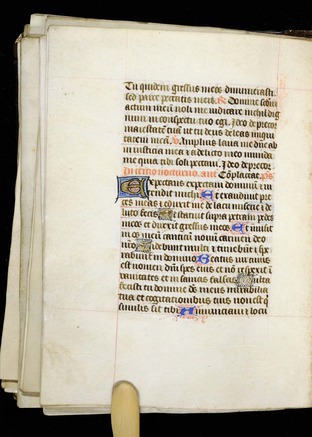 Tu quidem gressus meos dinumerasti
sed parce peccatis meis. Domine secundū
actum meū noli me iudicare nichil dig
num in conspectu tuo egi. Ideo deprecor
maiestatē tuā ut tu deus deleas iniqui
tatem meā. Amplius laua me dñe ab
iniusticia mea et a delicto meo munda
me quia tibi soli peccaui. Ideo deprecor
In tercio nocturno. ant Cōplaceat. ps
Expectans expectaui dominū et in
tendit michi. Et exaudiuit pre
ces meas et eduxit me de lacu miserie et de
luto fecis. Et statuit supra petram pedes
meos et direxit gressus meos. Et inmisit
in os meū canticū nouū carmen deo
nrō. Videbunt multi et timebūt et spe
rabunt in domino. Beatus uir cuius
est nomen dñi spes eius et nō respexit in
uanitates et insanias falsas. Multa
fecisti tu domine deus meus mirabilia
tua et cogitationibus tuis non est qui
similis sit tibi. Annunciaui et locu